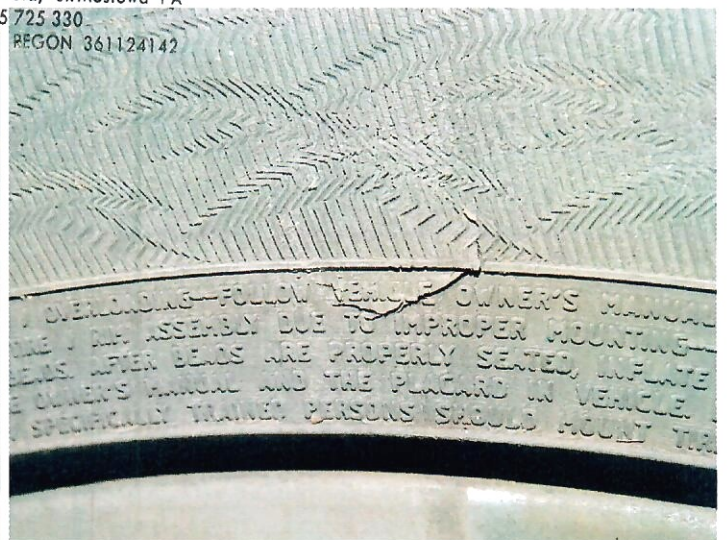 5 725 330
REGON 361124142
OVERLOADING—FOLLOW VEHICLE OWNER'S MANUAL
RIM ASSEMBLY DUE TO IMPROPER MOUNTING—
BEADS. AFTER BEADS ARE PROPERLY SEATED, INFLATE
OWNER'S MANUAL AND THE PLACARD IN VEHICLE.
SPECIFICALLY TRAINED PERSONS SHOULD MOUNT